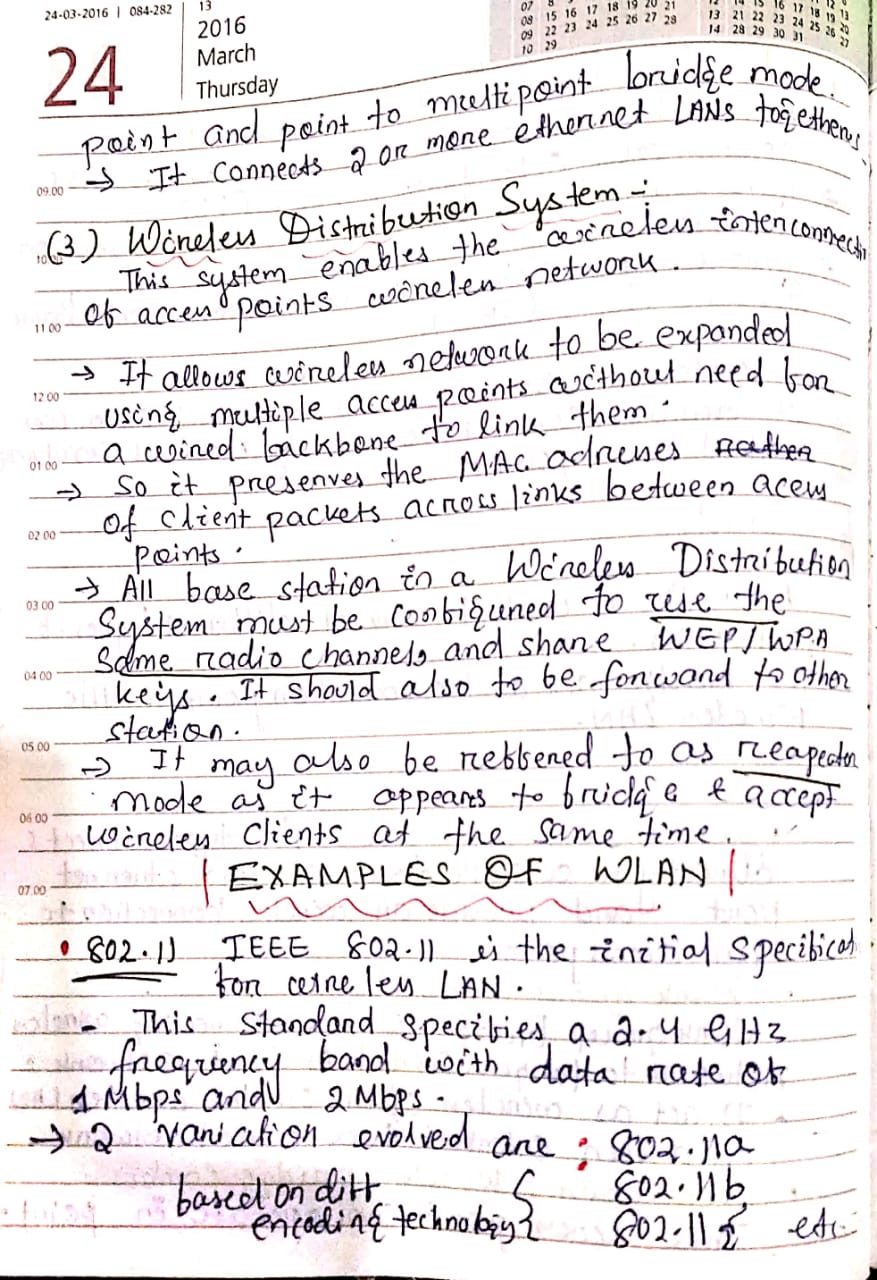 24-03-2016 | 084-282
13
2016
March
Thursday
24
07 8
08 15 16 17 18 19 20 21
09 22 23 24 25 26 27 28
10 29
13 21 22 23 24 25 26 27
14 28 29 30 31
point and point to multipoint bridge mode.
09.00 → It connects 2 or more ethernet LANs togethers
(3) Wireless Distribution System :-
This system enables the wireless interconnecti
of access points wireless network.
11 00
→ It allows wireless network to be expanded
12 00 using multiple access points without need for
a wired backbone to link them.
01 00 → So it preserves the MAC adresses Rather
of client packets across links between acess
02 00 points.
→ All base station in a Wireless Distribution
03 00 System must be configured to use the
same radio channels and share WEP/WPA
04 00 keys. It should also to be forward to other
station.
05 00 → It may also be reffered to as reapeator
mode as it appears to bridge & accept
06 00 wireless clients at the same time.
07 00 | EXAMPLES OF WLAN |
• 802.11 IEEE 802.11 is the initial specificat
for wireless LAN.
- This standard specifies a 2.4 GHz
frequency band with data rate of
1 Mbps and 2 Mbps.
→ 2 variation evolved are : 802.11a
based on diff { 802.11b
encoding technology { 802.11g etc